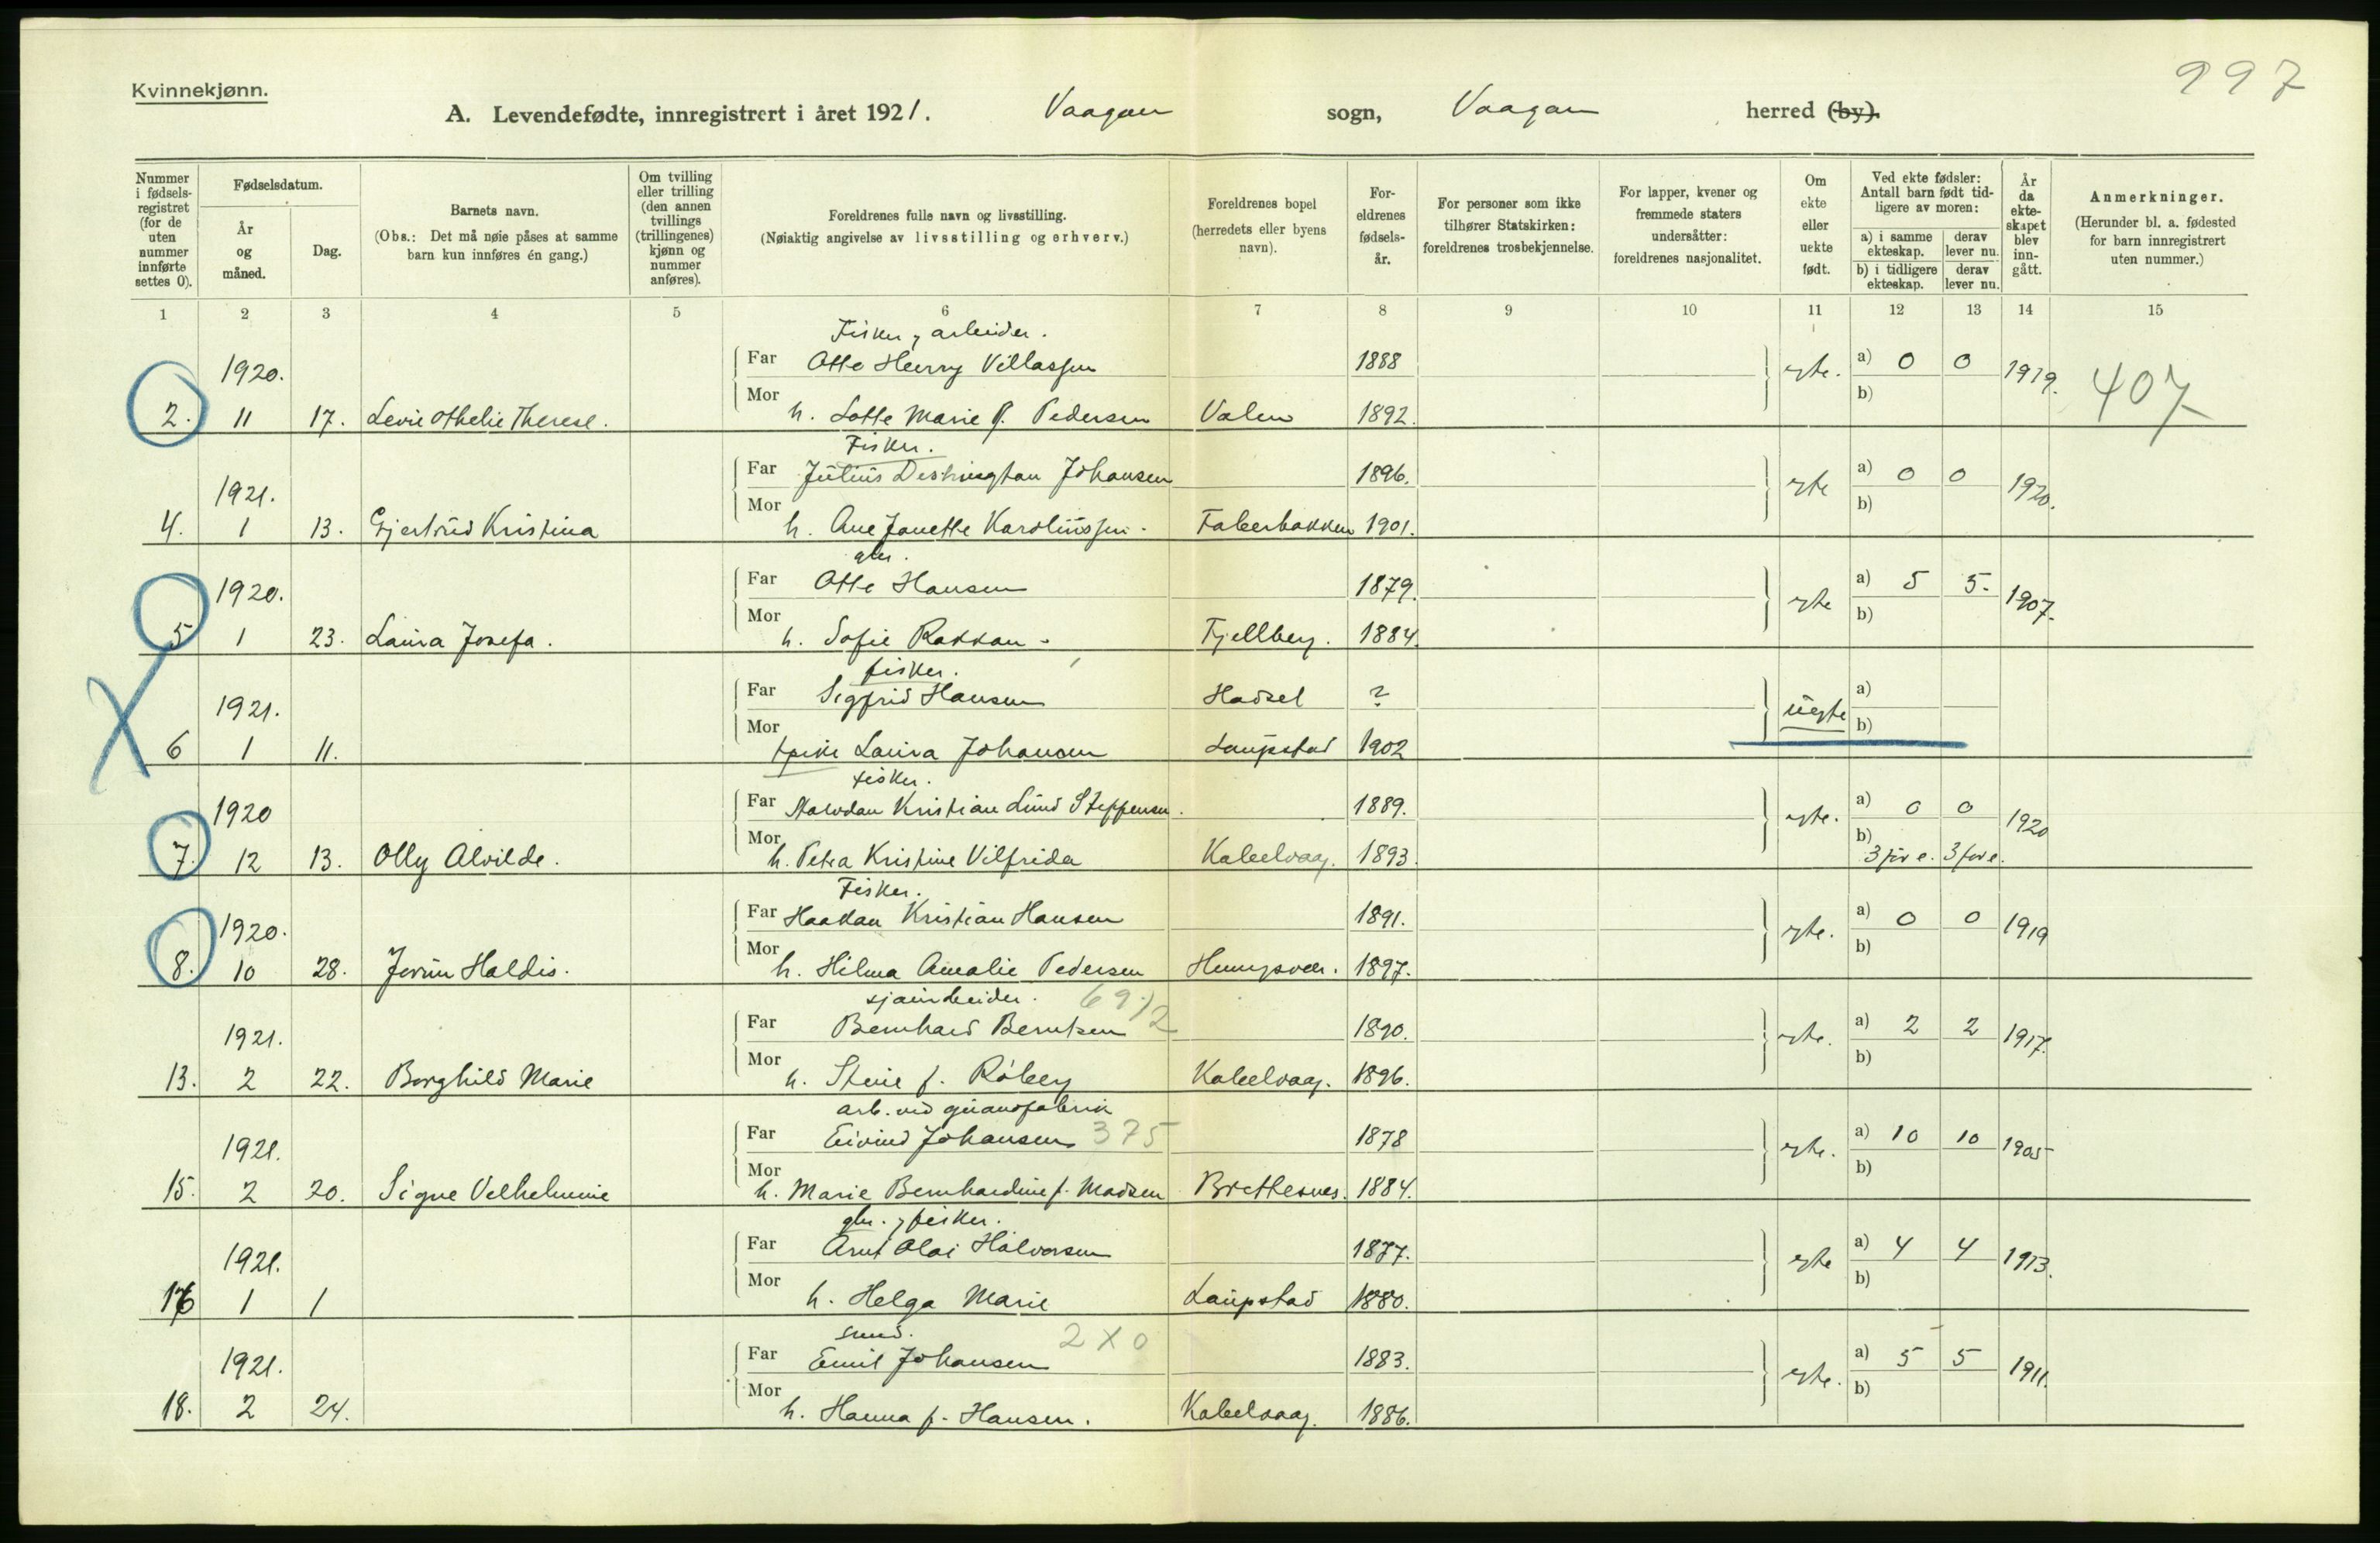 997
Kvinnekjønn.
A. Levendefødte, innregistrert i året 1921. Vaagan sogn, Vaagan herred (by).
Nummer i fødselsregistret (for de uten nummer innførte settes 0).
Fødselsdatum.
År og måned.
Dag.
Barnets navn.
(Obs.: Det må nøie påses at samme barn kun innføres én gang.)
Om tvilling eller trilling (den annen tvillings (trillingenes) kjønn og nummer anføres).
Foreldrenes fulle navn og livsstilling.
(Nøiaktig angivelse av livsstilling og erhverv.)
Foreldrenes bopel (herredets eller byens navn).
Foreldrenes fødselsår.
For personer som ikke tilhører Statskirken: foreldrenes trosbekjennelse.
For lapper, kvener og fremmede staters undersåtter: foreldrenes nasjonalitet.
Om ekte eller uekte født.
Ved ekte fødsler: Antall barn født tidligere av moren:
a) i samme ekteskap. derav lever nu.
b) i tidligere ekteskap. derav lever nu.
År da ekteskapet blev inngått.
Anmerkninger.
(Herunder bl. a. fødested for barn innregistrert uten nummer.)
1 2 3 4 5 6 7 8 9 10 11 12 13 14 15
Fisker, arbeider.
1920. Far Otto Henry Villassen 1888 egte. a) 0 0 1919. 407
2. 11 17. Levie Othelie Therese. Mor h. Lotte Marie P. Pedersen Valen 1892. b)
Fisker.
1921. Far Julius Johansen 1896. egte a) 0 0 1920.
4. 1 13. Gjertrud Kristina Mor h. Ane Janette Karolinssen. 1901. b)
gbr.
1920. Far Otto Hansen 1879. egte a) 5 5. 1907.
5 1 23. Laura Josefa. Mor h. Sofie Rakkan. Fjellberg. 1884. b)
fisker.
1921. Far Sigfrid Hansen Hadsel ? uegte a)
6 1 11. Mor pike Laura Johansen Laupstad 1902 b)
fisker.
1920 Far Kristian Lund Steffensen. 1889. egte. a) 0 0 1920
7. 12 13. Olly Alvilde. Mor h. Petra Kristine Vilfrida Kabelvaag. 1893. b) 3 før e. 3 før e.
Fisker.
1920. Far Haakan Kristian Hansen 1891. egte. a) 0 0 1919
8. 10 28. Jorun Haldis. Mor h. Hilma Amalie Pedersen 1897. b)
sjauarbeider. 69.12
1921. Far Bernhard Berntsen 1890. egte. a) 2 2 1917.
13. 2 22. Borghild Marie Mor h. Stine f. Röberg Kabelvaag. 1896. b)
arb. ved guanofabrik
1921. Far Eivind Johansen 375 1878 egte. a) 10 10 1905
15. 2 20. Signe Velhelmine Mor h. Marie Bernhardine f. Madsen Brettesnes. 1884. b)
gbr., fisker.
1921. Far Arnt Olai Halvorsen 1877. egte a) 4 4 1913.
16 1 1 Mor h. Helga Marie Laupstad 1880. b)
smed. 2 X 0
1921. Far Emil Johansen 1883. egte. a) 5 5 1911.
18. 2 24. Mor h. Hanna f. Hansen. Kabelvaag. 1886. b)